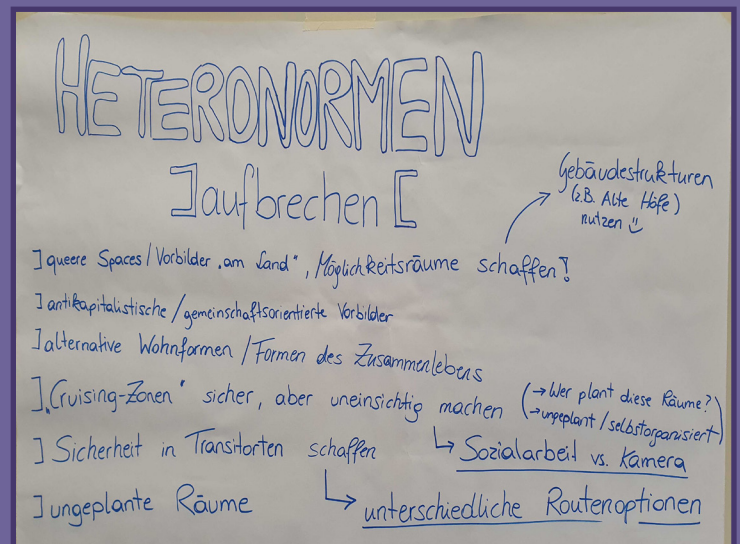 HETERONORMEN
]aufbrechen[
Gebäudestrukturen
(z.B. Alte Höfe)
nutzen
]queere Spaces/Vorbilder „am Land“, Möglichkeitsräume schaffen!
]antikapitalistische/gemeinschaftsorientierte Vorbilder
]alternative Wohnformen/Formen des Zusammenlebens
]„Cruising-Zonen“ sicher, aber uneinsichtig machen
(→Wer plant diese Räume?
→ungeplant/selbstorganisiert)
Sozialarbeit vs. Kamera
]Sicherheit in Transitorten schaffen
unterschiedliche Routenoptionen
]ungeplante Räume